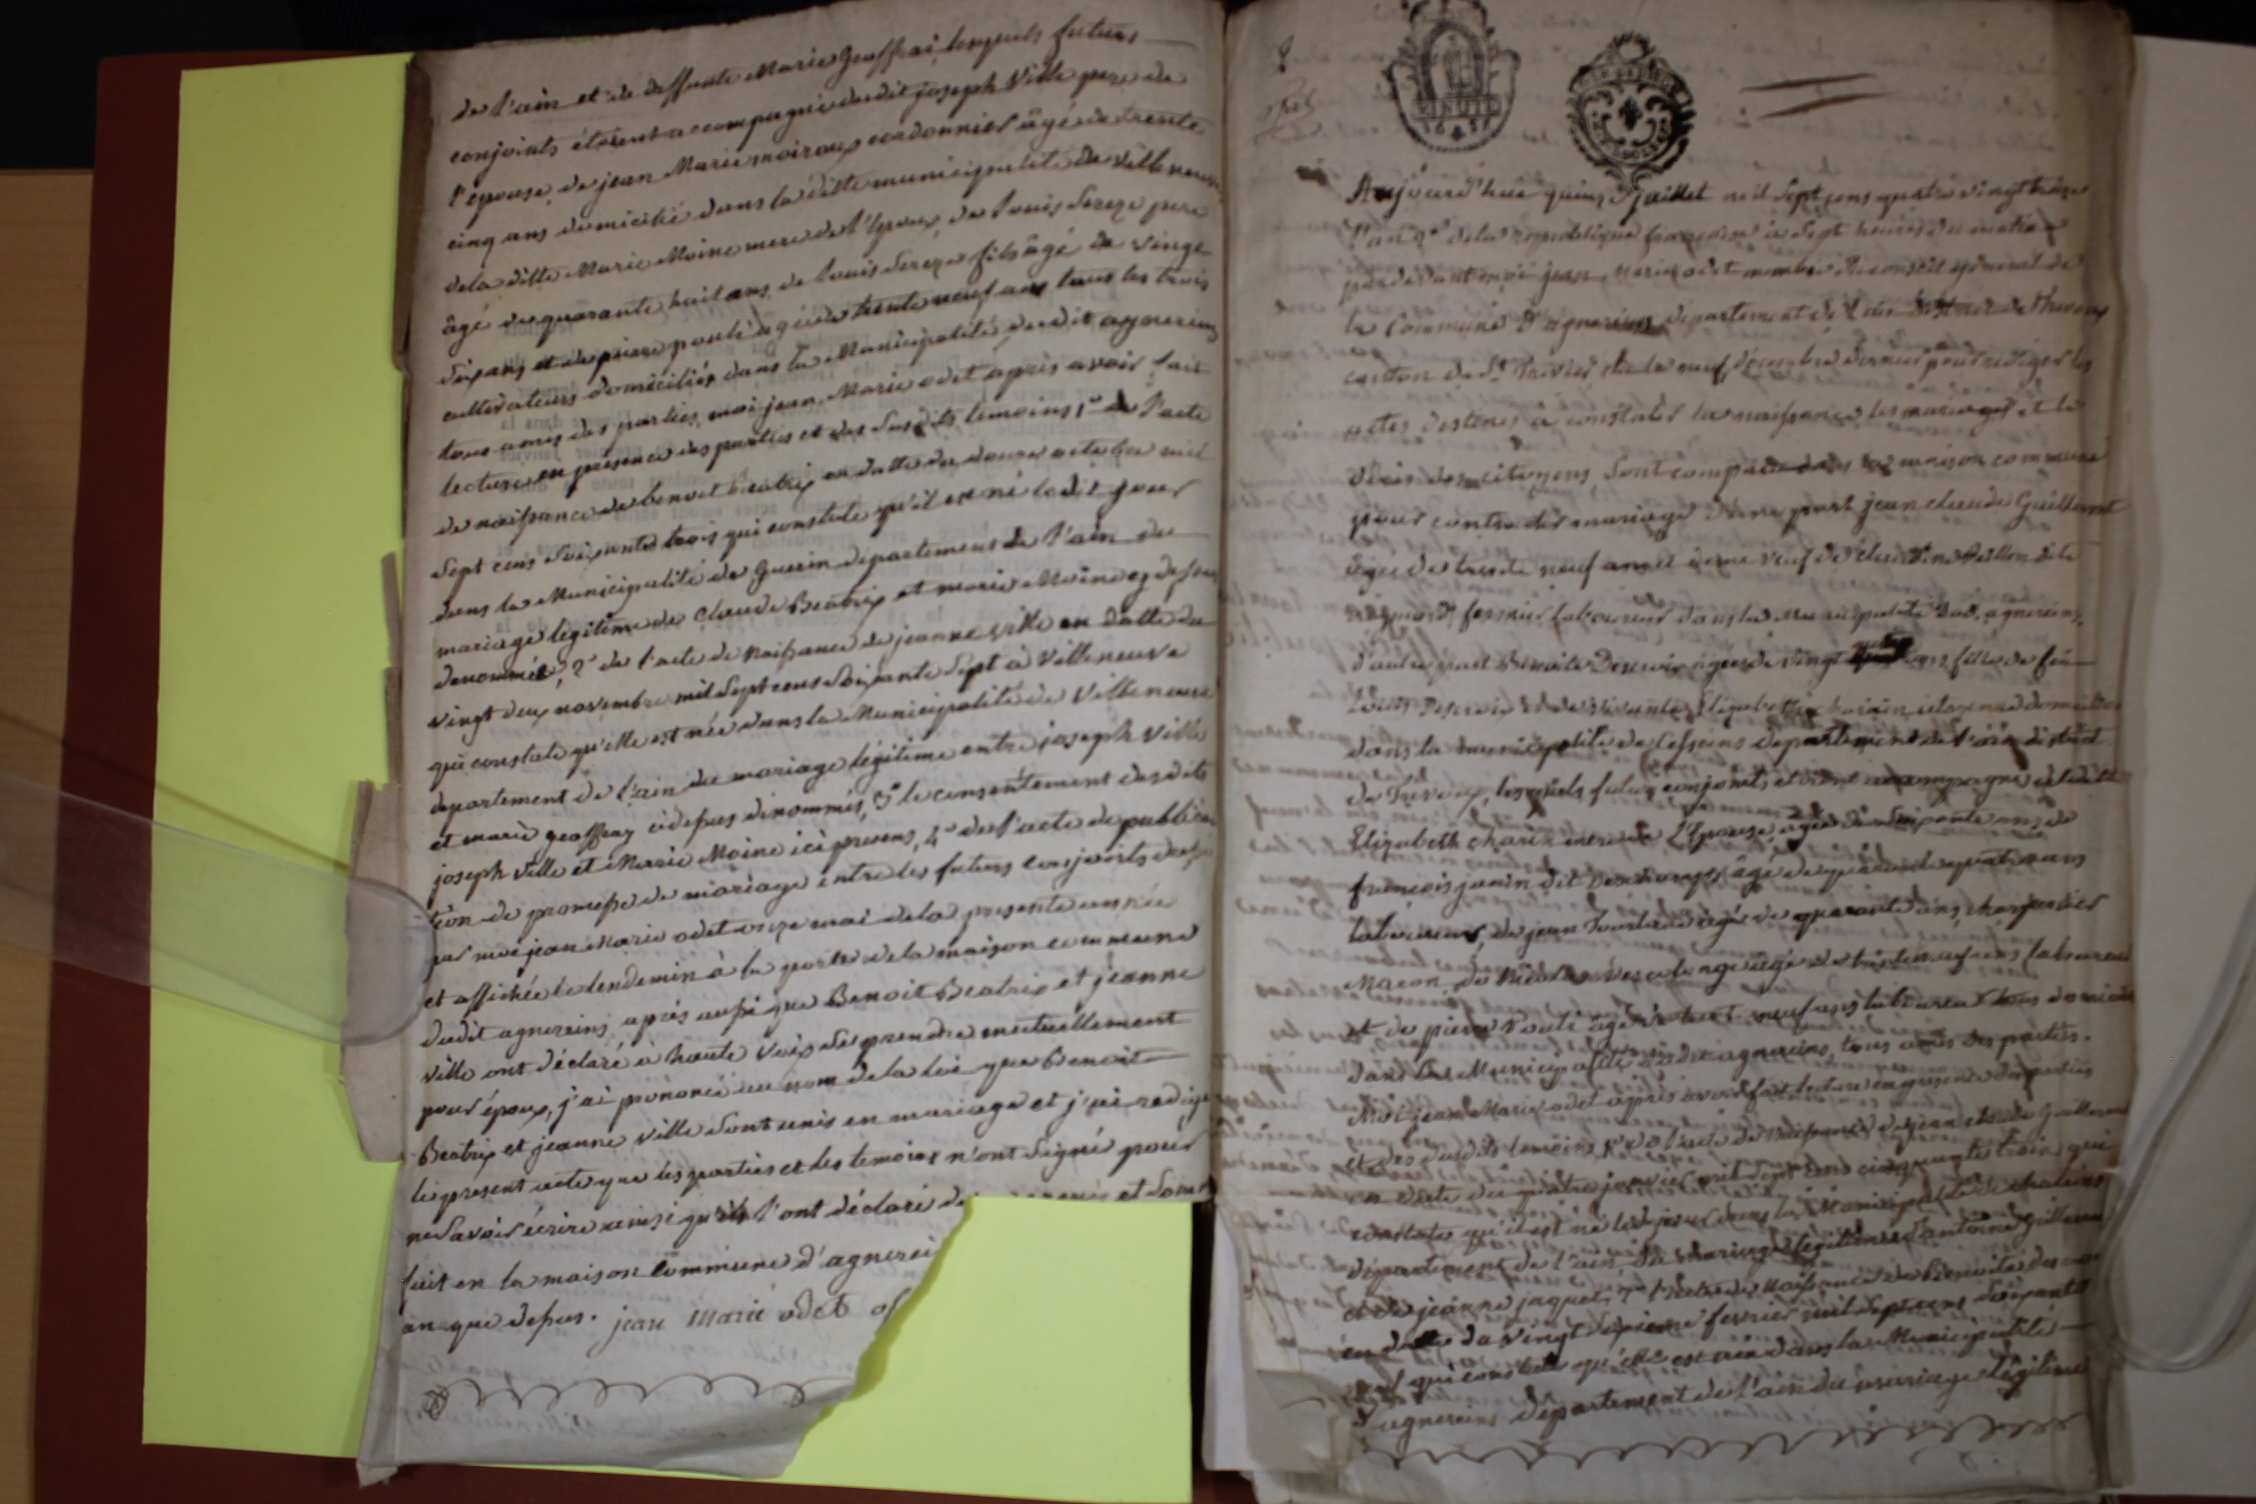 de l'ain et de deffunte Marie Geoffrai, lesquels futurs
conjoints étoient accompagnie dudit joseph Ville pere de
l'epouse, de jean Marie noiroux cordonnier âgé de trente
cinq ans domicilié dans la ditte municipalité de Villeneuve
de la ditte Marie Moine mere de l'Epoux, de louis Sereze pere
âgé de quarante huit ans, de louis Sereze fils âgé de vingt
six ans et de pierre poulé agé de trente neuf ans tous les trois
cultivateurs domiciliés dans la Municipalité dudit agnereins
tous amis des parties, moi jean Marie odet après avoir fait
lecture en présence des parties et des susdits temoins, 1º de l'acte
de naissance de benoit beatrix en datte du douze octobre mil
sept cens soixante trois qui constate qu'il est né ledit jour
dans la Municipalité de Guerin departement de l'ain du
mariage légitime de Claude Beatrix et marie Moine cy dessus
denommés, 2º de l'acte de naissance de jeanne ville en datte du
vingt deux novembre mil sept cens soixante sept à Villeneuve
qui constate qu'elle est née dans la Municipalité de Villeneuve
departement de l'ain du mariage légitime entre joseph Ville
et marie geoffray cidessus denommés, 3º le consentement desdits
joseph Ville et Marie Moine ici presens, 4º de l'acte de publica
tion de promesse de mariage entre les futurs conjoints
par moi jean Marie odet onze mai de la presente année
et affichée le lendemin à la porte de la maison commune
dudit agnereins, après aussi que Benoit Beatrix et jeanne
ville ont déclaré à haute voix se prendre mutuellement
pour époux, j'ai prononcé au nom de la loi que Benoit
Beatrix et jeanne ville sont unis en mariage et j'ai redigé
le present acte que les parties et les temoins n'ont signé pour
ne savoir écrire ainsi qu'ils l'ont déclaré de
fait en la maison commune d'agnerei
an que dessus. jean marie odet of
Aujourd'hui quinze juillet mil sept cens quatre vingt treize
l'an 2e de la republique françoise à sept heures du matin
pardevant moi jean marie odet membre du conseil general de
la Commune d'agnereins departement de l'ain district de Trevoux
canton de St Trivier élu le neuf décembre dernier pour rediger les
actes destinés à constater la naissance les mariages et le
décès des citoyens, sont comparus dans la maison commune
pour contracter mariage d'une part jean claude Guillemot
âgé de trente neuf ans veuf de
fermier laboureur dans la municipalité dud. agnereins,
d'autre part Benoite agée de vingt ans fille de feu
Louis et de vivante Elizabeth charin domiciliée
dans la municipalité de Cesseins departement de l'ain district
de Trevoux, lesquels futurs conjoints etoient accompagné de ladite
Elizabeth charin mere de L'Epouse, agée de soixante ans, de
françois janin dit âgé de quarante quatre ans
laboureur, de jean agé de quarante ans, charpentier
Macon, de agé de laboureur
et de pierre Poulé agé de trente neuf ans laboureur tous domiciliés
dans la Municipalité dudit agnereins, tous amis des parties.
Moi jean Marie odet après avoir fait lecture en presence des parties
et des susdits temoins, 1º de l'acte de naissance de jean claude Guillemot
en datte du quatre janvier mil sept cens cinquante trois qui
constate qu'il est né led. jour dans la Municipalité de chaleins
departement de l'ain du mariage légitime d'antoine Guillemot
et de jeanne jaquet, 2º l'acte de Naissance de Benoite
en datte du vingt sixieme fevrier mil sept cens soixante
qui constate qu'elle est née dans la Municipalité
d'agnereins departement de l'ain du mariage légitime